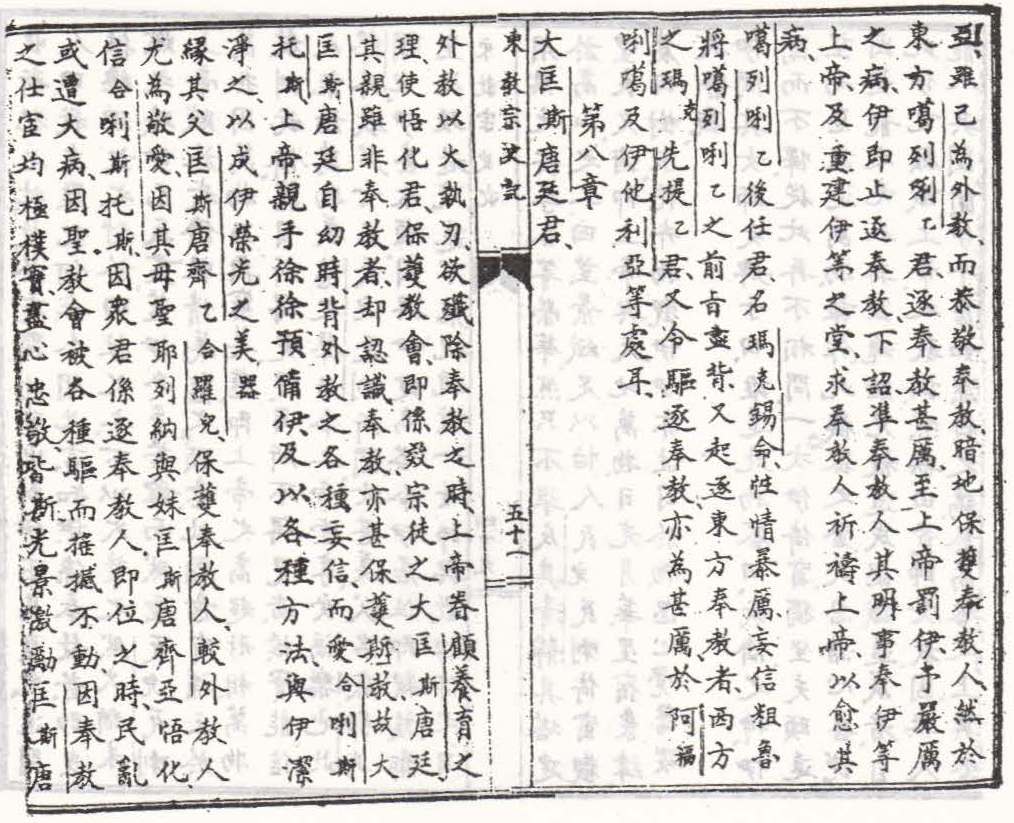 亞、雖已為外教、而恭敬奉教、暗地保護奉教人、然於
東方噶列唎乙君、逐奉教甚厲、至上帝罰伊、予嚴厲
之病、伊即止逐奉教、下詔準奉教人其明事奉伊等
上帝、及重建伊等之堂、求奉教人祈禱上帝、以愈其
病、
噶列唎乙後任君、名瑪克錫命、性情暴厲、妄信粗魯
將噶列唎乙之前旨盡背、又起逐東方奉教者、西方
之瑪克先提乙君、又令驅逐奉教、亦為甚厲於阿福
唎噶及伊他利亞等處耳、
第八章
大匡斯唐廷君、
東教宗史記
五十一
外教以火執刃、欲殲除奉教之時、上帝眷顧養育之
理、使悟化君、保護教會、即係效宗徒之大匡斯唐廷
其親雖非奉教者、却認識奉教、亦甚保護斯教、故大
匡斯唐廷自幼時、背外教之各種妄信、而愛合唎斯
托斯、上帝親手徐徐預備伊、及以各種方法、與伊潔
淨之、以成伊榮光之美器
緣其父匡斯唐齊乙合羅兒、保護奉教人、較外教人
尤為敬愛、因其母聖耶列納與妹匡斯唐齊亞悟化
信合唎斯托斯、因衆君係逐奉教人、即位之時、民亂
或遭大病、因聖教會被各種驅而搖撼不動、因奉教
之仕宦均極樸實、盡心忠敬、皆斯光景激勵匡斯唐